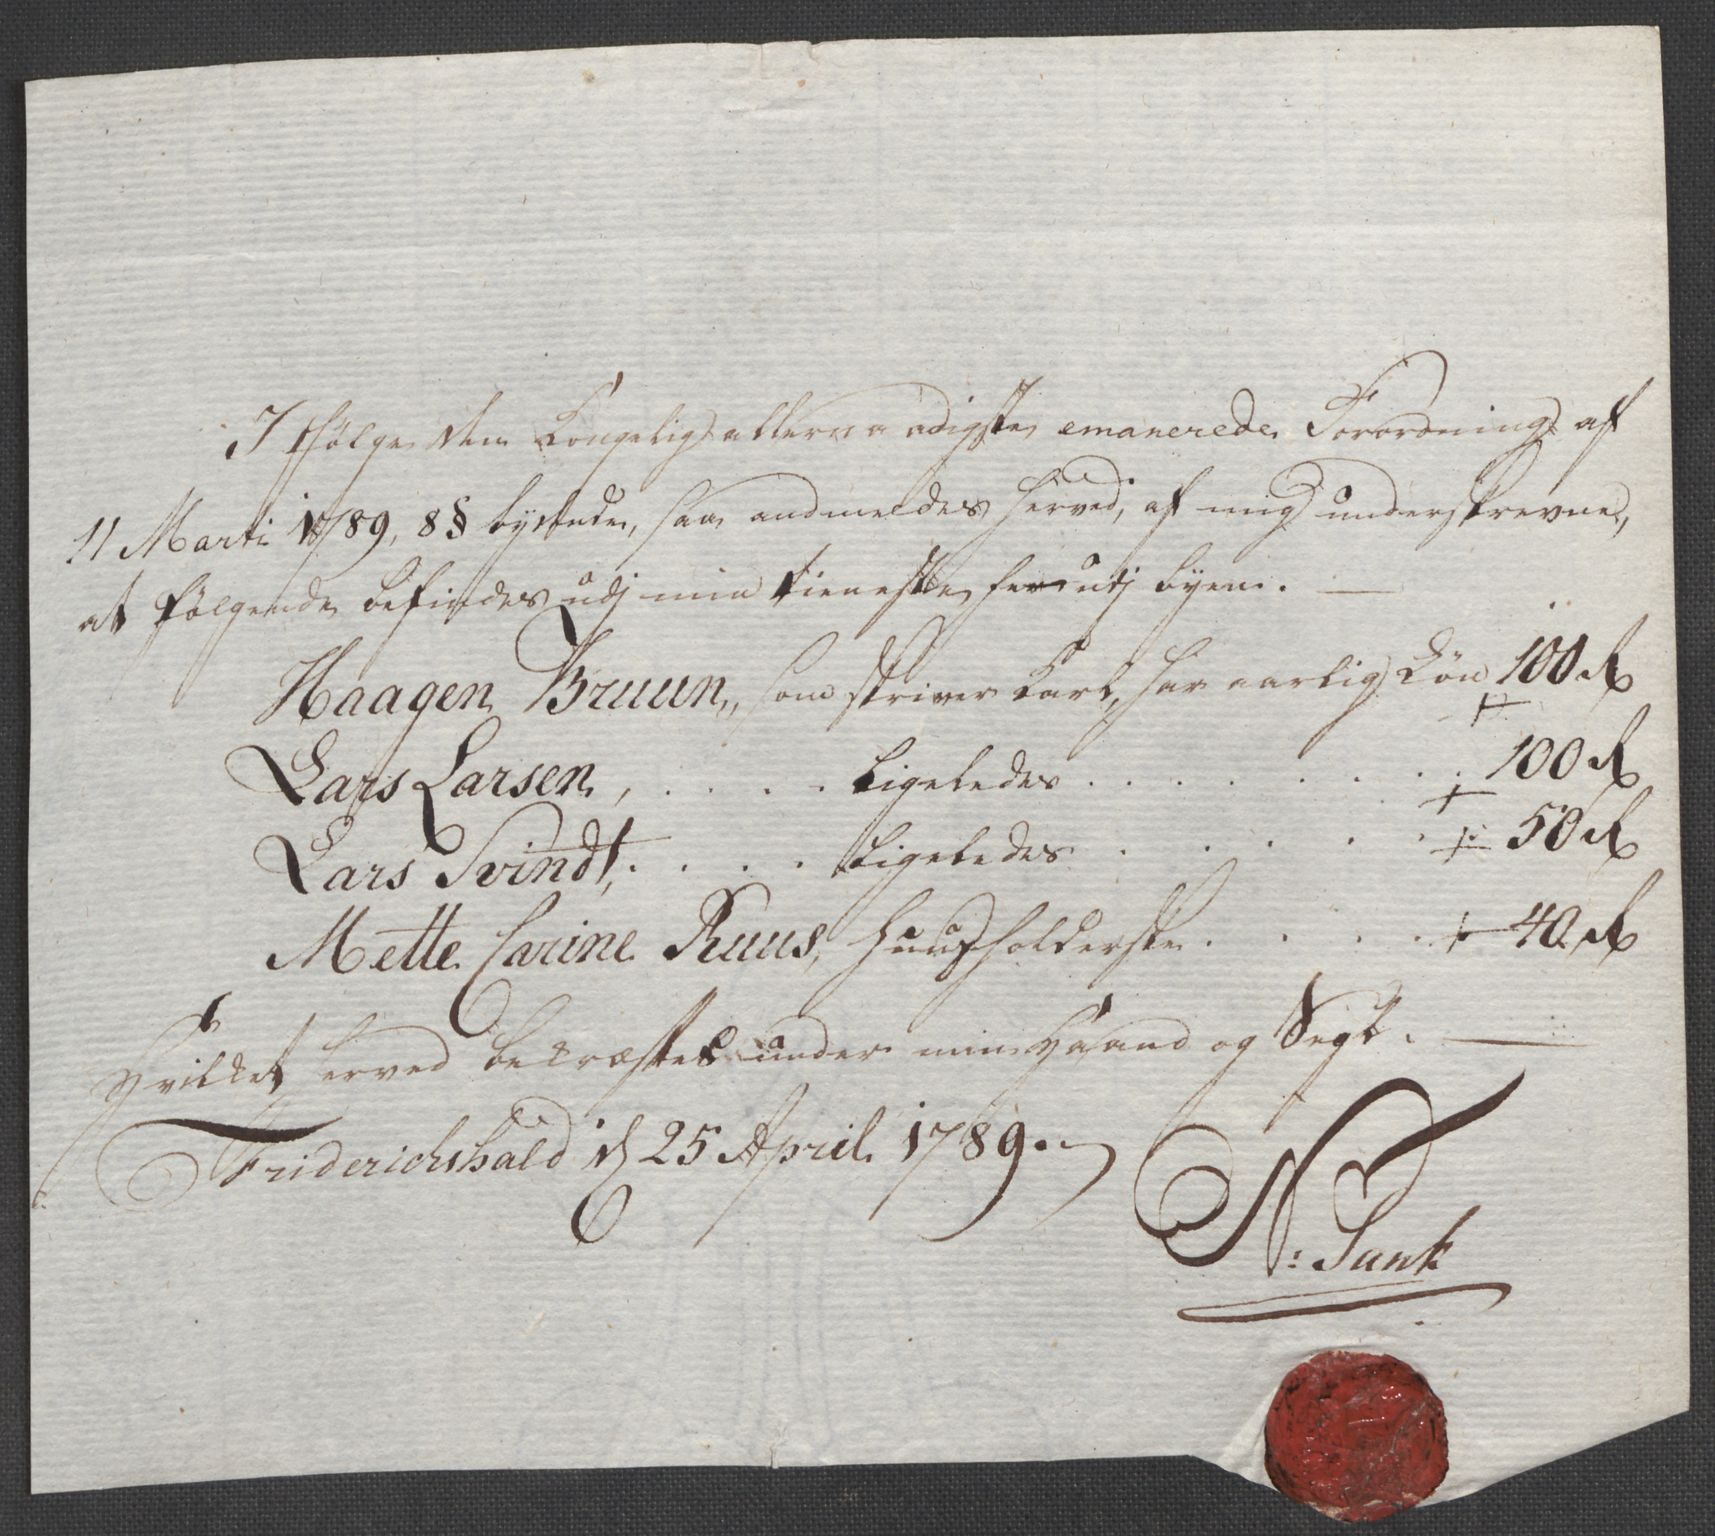 I følge den Kongelig allernaadigste emanerede Forordning af
11 Marti 1789, 8§ bydende, saa andmeldes herved, af mig underskrevne,
at følgende befindes udj min tieneste her udj byen.
Haagen Bruun, som skriver Karl, har aarlig Løn 100 R
Lars Larsen, . . . . Ligeledes . . . . . . . 100 R
Lars Svindt, . . . . Ligeledes . . . . . 50 R
Mette Carine Ruus, Huusholderske . . . . 40 R
Hvilket herved bekræftes under min Haand og Segl.
Friderichshald d 25 April 1789.
N: Tank